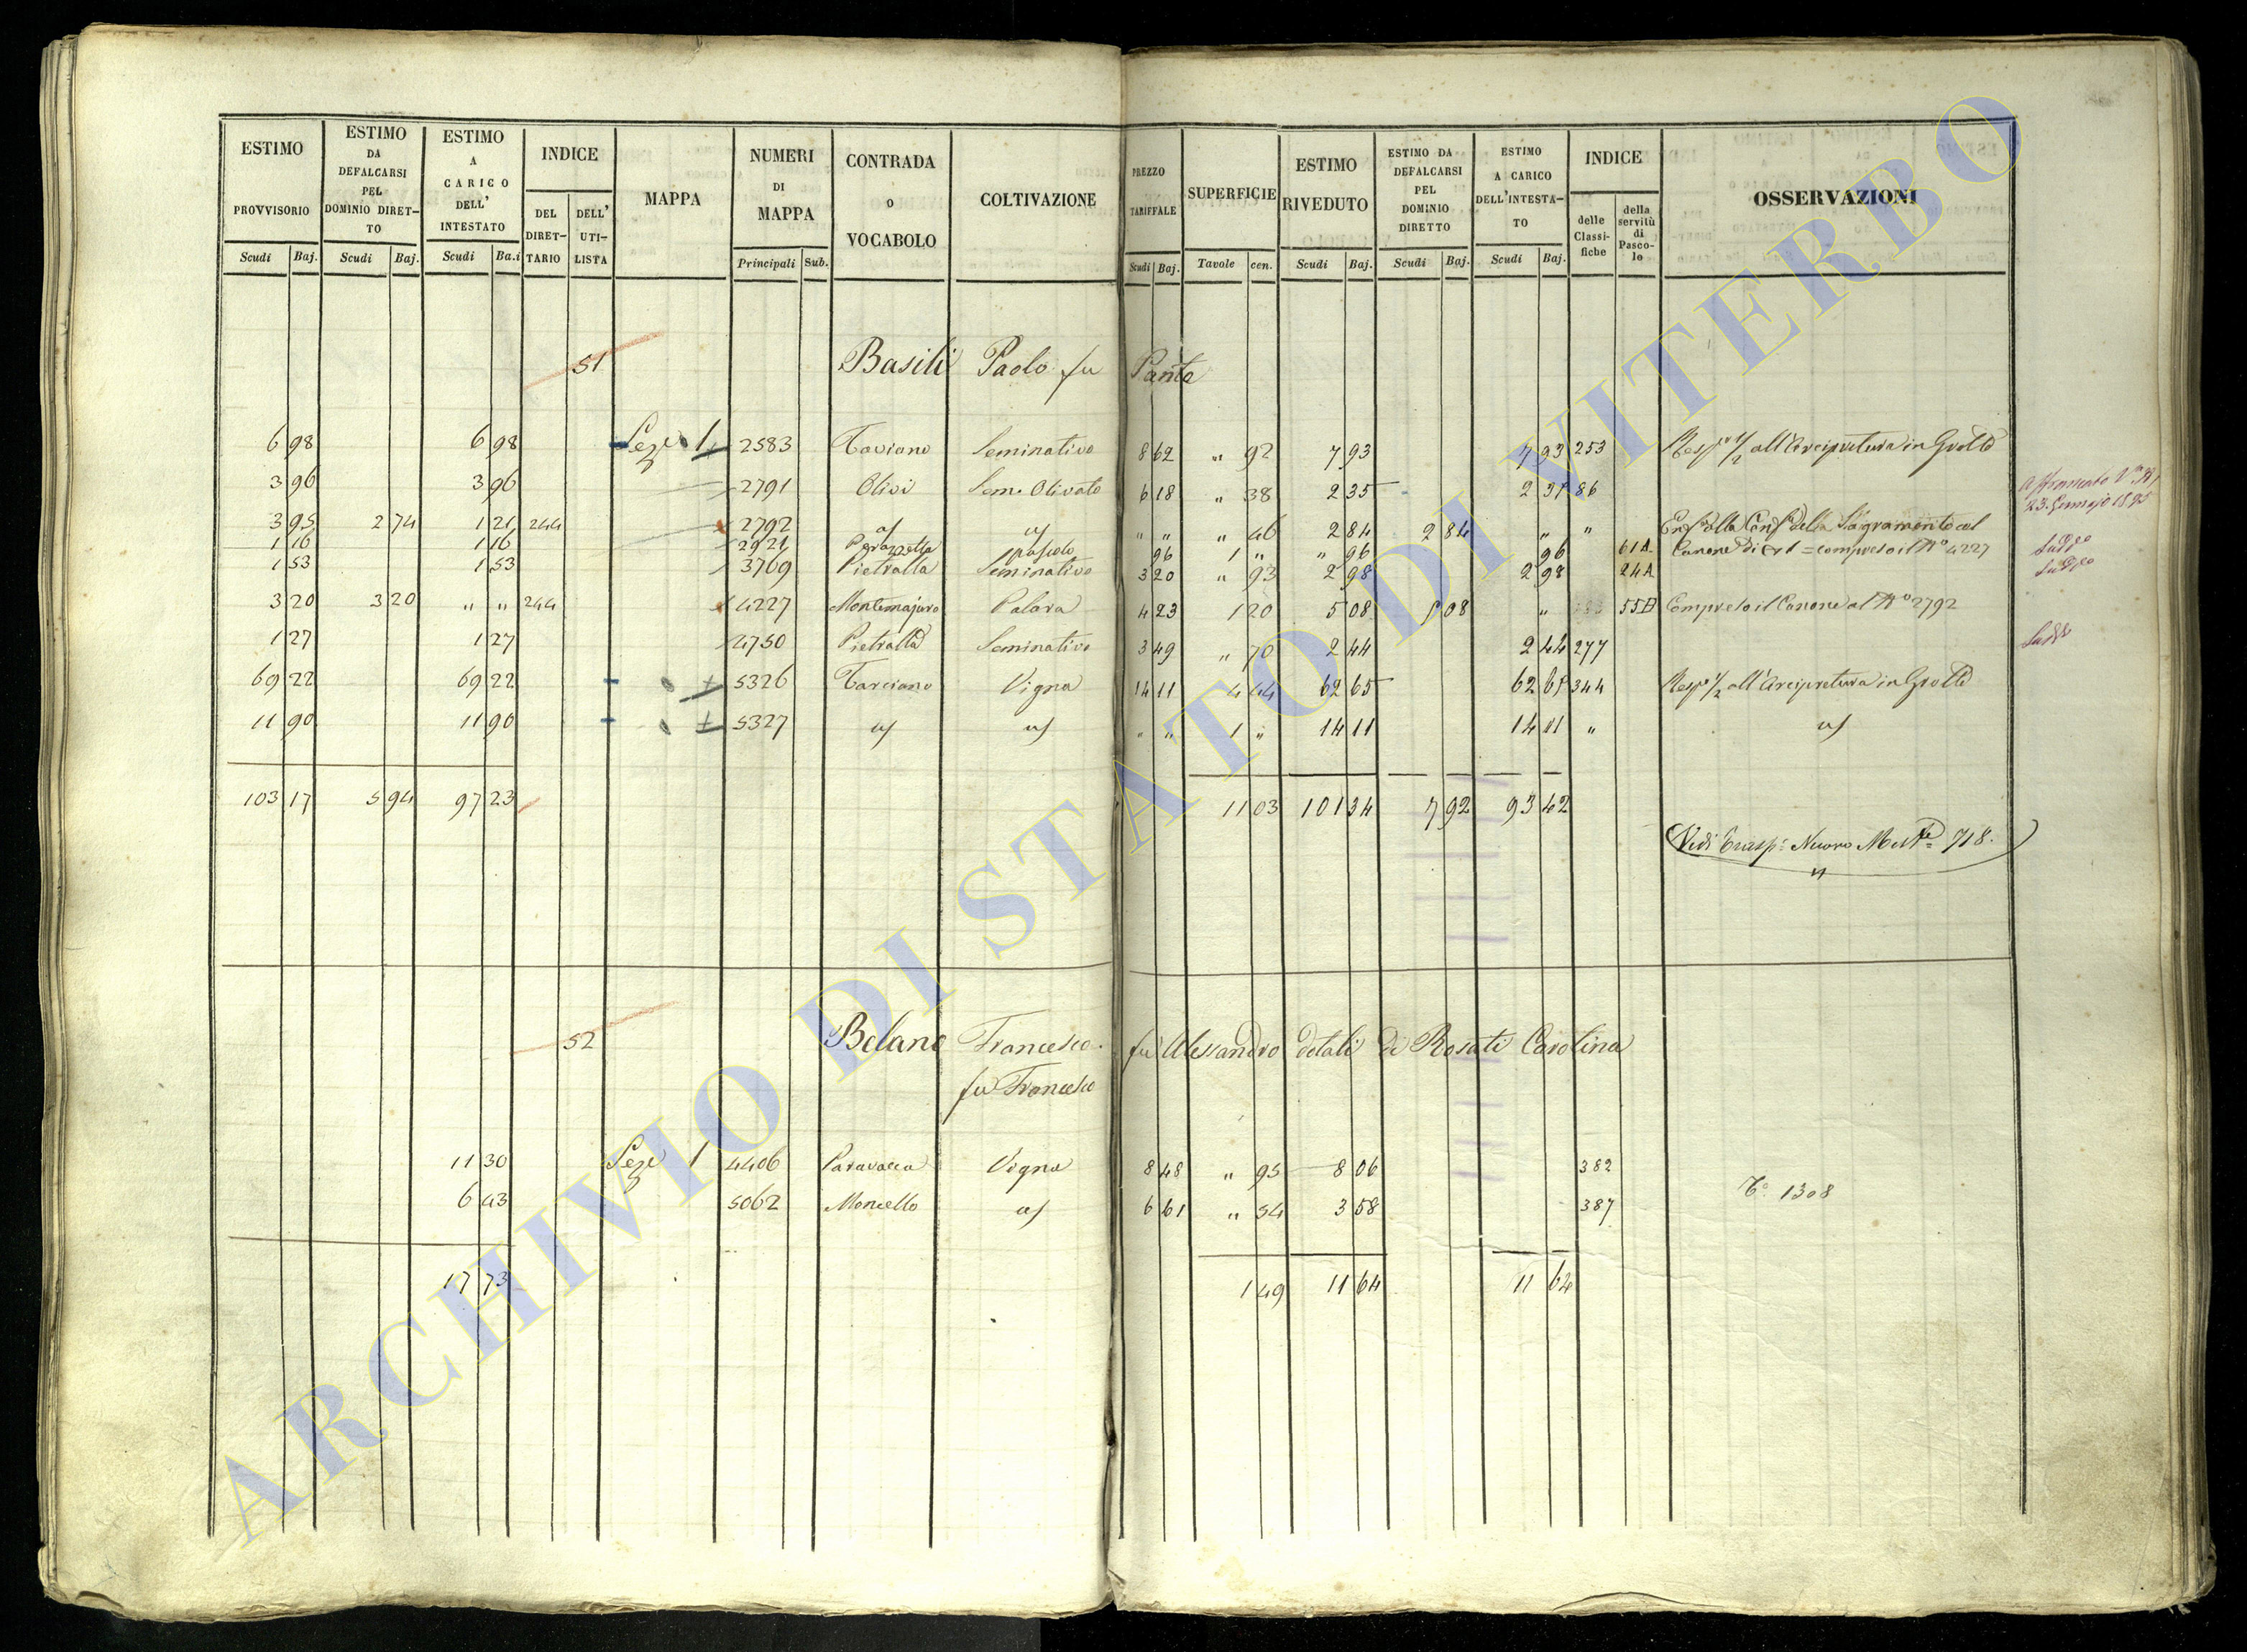 ESTIMO PROVVISORIO
Scudi Baj.
ESTIMO DA DEFALCARSI PEL DOMINIO DIRET- TO
Scudi Baj.
ESTIMO A CARICO DELL' INTESTATO
Scudi Ba.i
INDICE
DEL DIRET- TARIO
DELL' UTI- LISTA
MAPPA
NUMERI DI MAPPA
Principali Sub.
CONTRADA O VOCABOLO
COLTIVAZIONE
PREZZO TARIFFALE
Scudi Baj.
SUPERFICIE
Tavole cen.
ESTIMO RIVEDUTO
Scudi Baj.
ESTIMO DA DEFALCARSI PEL DOMINIO DIRETTO
Scudi Baj.
ESTIMO A CARICO DELL'INTESTA- TO
Scudi Baj.
INDICE
delle Classi- fiche
della servitù di Pasco- lo
OSSERVAZIONI
51 Basili Paolo fu Sante
6 98 6 98 Seze 1 2583 Taviano Seminativo 8 62 " 92 7 93 7 93 253 all'Arcipretura in Grotte
3 96 3 96 2791 Olivi Sem. Olivato 6 18 " 38 2 35 2 35 86
23 Gennajo 1895
3 95 2 74 1 21 244 2792 " " " 46 2 84 2 84 " "
1 16 1 16 2921 pascolo 96 1 " " 96 96 61A Canone di = compreso il No 4227
1 53 1 53 3769 Pietralta Seminativo 3 20 " 93 2 98 2 98 24A
3 20 3 20 " " 244 4227 Montemajuro 4 23 1 20 5 08 5 08 " 55B Compreso il Canone al No 2792
1 27 1 27 4750 Pietralta Seminativo 3 49 " 70 2 44 2 44 277
69 22 69 22 5326 Vigna 14 11 4 44 62 65 62 65 344 1/2 all'Arcipretura in Grotte
11 90 11 90 5327 " " 1 " 14 11 14 11 "
103 17 5 94 97 23 11 03 101 34 7 92 93 42
Vedi Trasp: Nuovo 718.
52 Belano Francesco fu Alessandro dotali di Rosati Carolina
fu Francesco
11 30 Seze 1 4406 Vigna 8 48 " 95 8 06 382
6 43 5062 Moncello 6 61 " 54 3 58 387
To 1308
17 73 1 49 11 64 11 64
ARCHIVIO DI STATO DI VITERBO